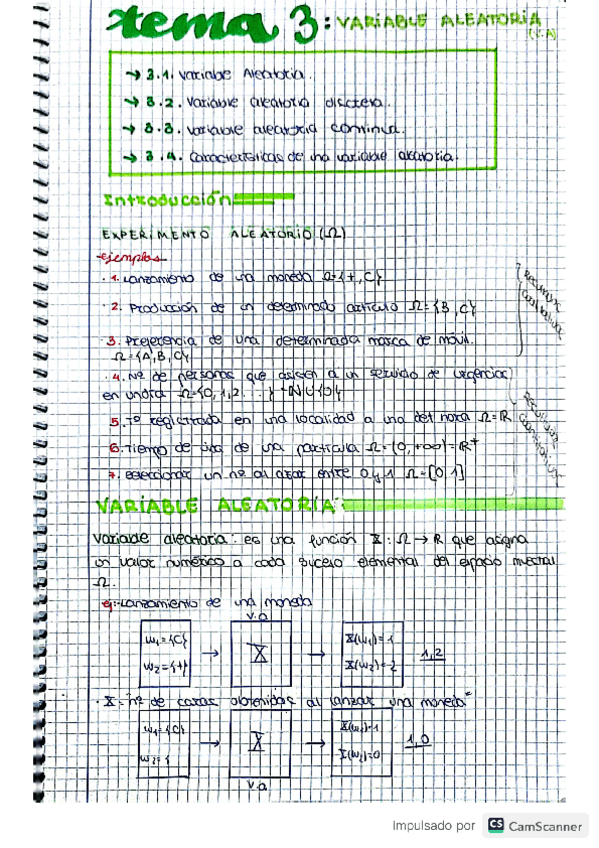 tema 3: VARIABLE ALEATORIA
(V.A)
→ 3.1. Variable Aleatoria.
→ 3.2. Variable aleatoria discreta.
→ 3.3. Variable aleatoria continua.
→ 3.4. Características de una variable aleatoria.
Introducción
EXPERIMENTO ALEATORIO (Ω)
-ejemplos
· 1. Lanzamiento de una moneda Ω={+,C}
· 2. Producción de un determinado artículo Ω={B,C}
· 3. Preferencia de una determinada marca de móvil.
Ω={A,B,C}
Resultados
Cualitativos
· 4. Nº de personas que asisten a un servicio de urgencias
en un día Ω={0,1,2...}
5. Tª registrada en una localidad a una det hora Ω=ℝ
6. Tiempo de vida de una partícula Ω=(0,+∞)=ℝ⁺
· 7. Seleccionar un nº al azar entre 0 y 1 Ω=[0 1]
VARIABLE ALEATORIA:
Variable aleatoria: es una función X: Ω → ℝ que asigna
un valor numérico a cada suceso elemental del espacio muestral
Ω.
ej:-Lanzamiento de una moneda
V.a
w₁={C}
w₂={+}
→ X →
X(w₁)=1
X(w₂)=2
1,2
· X="nº de caras obtenidas al lanzar una moneda"
w₁={C}
→ X →
X(w₁)=1
X(w₂)=0
1,0
V.a
Impulsado por CS CamScanner